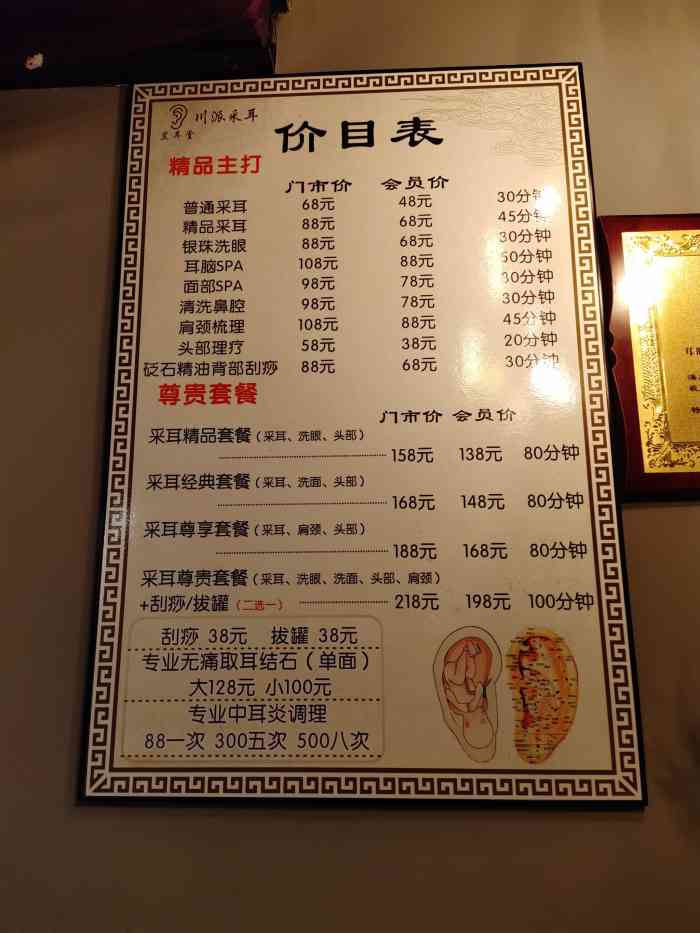 川派采耳
价目表
精品主打
门市价 会员价
普通采耳 68元 48元 30分钟
精品采耳 88元 68元 45分钟
银珠洗眼 88元 68元 30分钟
耳脑SPA 108元 88元 50分钟
面部SPA 98元 78元 30分钟
清洗鼻腔 98元 78元 30分钟
肩颈梳理 108元 88元 45分钟
头部理疗 58元 38元 20分钟
砭石精油背部刮痧 88元 68元 30分钟
尊贵套餐
门市价 会员价
采耳精品套餐(采耳、洗眼、头部)
158元 138元 80分钟
采耳经典套餐(采耳、洗面、头部)
168元 148元 80分钟
采耳尊享套餐(采耳、肩颈、头部)
188元 168元 80分钟
采耳尊贵套餐(采耳、洗眼、洗面、头部、肩颈)
+刮痧/拔罐(二选一) 218元 198元 100分钟
刮痧 38元 拔罐 38元
专业无痛取耳结石(单面)
大128元 小100元
专业中耳炎调理
88一次 300五次 500八次